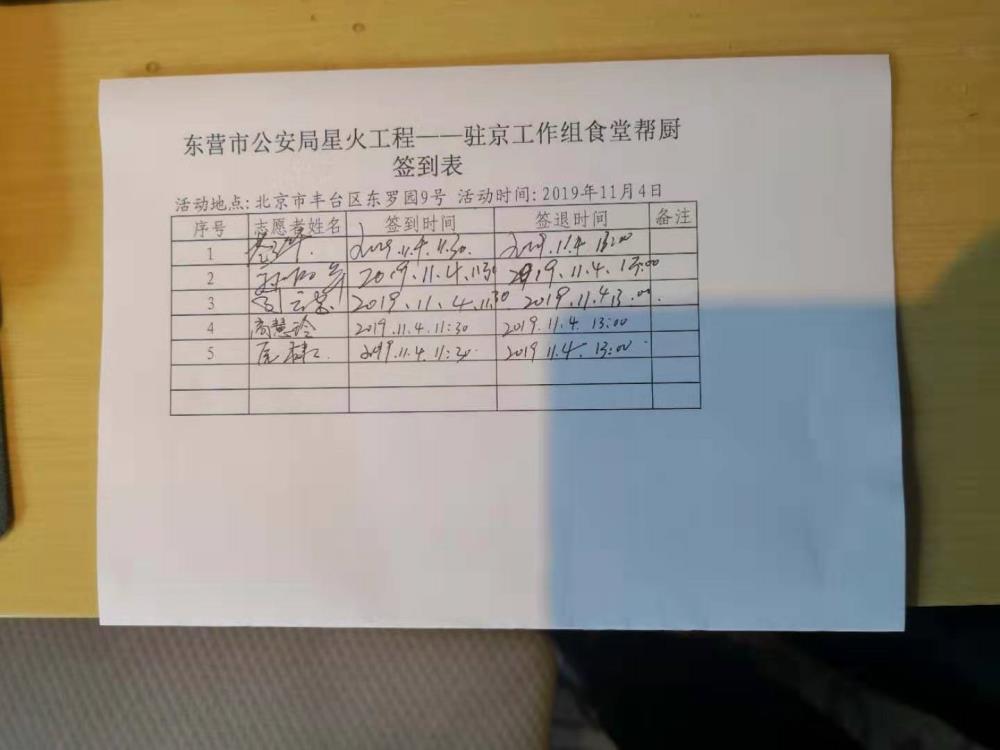 东营市公安局星火工程——驻京工作组食堂帮厨
签到表
活动地点:北京市丰台区东罗园9号 活动时间:2019年11月4日
序号 志愿者姓名 签到时间 签退时间 备注
1 2019.11.4.11:30. 2019.11.4 13:00
2 2019.11.4.11:30 2019.11.4.13:00
3 2019.11.4.11:30 2019.11.4 13:00.
4 商慧玲 2019.11.4.11:30 2019.11.4.13:00
5 2019.11.4.11:30. 2019.11.4.13:00.